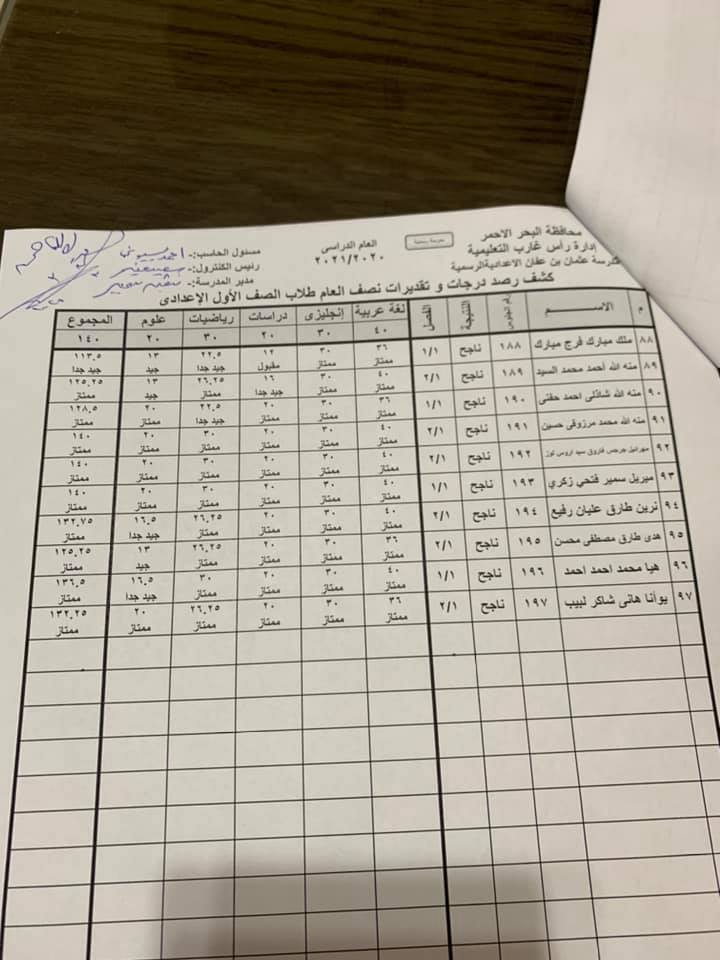 محافظة البحر الاحمر
إدارة رأس غارب التعليمية
مدرسة عثمان بن عفان الاعدادية الرسمية
العام الدراسى
٢٠٢١/٢٠٢٠
مسئول الحاسب:-
رئيس الكنترول:-
مدير المدرسة:-
كشف رصد درجات و تقديرات نصف العام طلاب الصف الأول الإعدادى
م الاســـــم رقم الجلوس النتيجة الفصل لغة عربية إنجليزى دراسات رياضيات علوم المجموع
٤٠ ٣٠ ٢٠ ٣٠ ٢٠ ١٤٠
٨٨ ملك مبارك فرج مبارك ١٨٨ ناجح ١/١ ٣٦ ٣٠ ١٢ ٢٢.٥ ١٣ ١١٣.٥
ممتاز ممتاز مقبول جيد جدا جيد جيد جدا
٨٩ منه الله أحمد محمد السيد ١٨٩ ناجح ٢/١ ٤٠ ٣٠ ١٦ ٢٦.٢٥ ١٣ ١٢٥.٢٥
ممتاز ممتاز جيد جدا ممتاز جيد ممتاز
٩٠ منه الله شاذلى احمد حفنى ١٩٠ ناجح ١/١ ٣٦ ٣٠ ٢٠ ٢٢.٥ ٢٠ ١٢٨.٥
ممتاز ممتاز ممتاز جيد جدا ممتاز ممتاز
٩١ منه الله محمد مرزوقى حسين ١٩١ ناجح ٢/١ ٤٠ ٣٠ ٢٠ ٣٠ ٢٠ ١٤٠
ممتاز ممتاز ممتاز ممتاز ممتاز ممتاز
٩٢ مهرائيل جرجس فاروق سيد اروس توز ١٩٢ ناجح ٢/١ ٤٠ ٣٠ ٢٠ ٣٠ ٢٠ ١٤٠
ممتاز ممتاز ممتاز ممتاز ممتاز ممتاز
٩٣ ميريل سمير فتحي زكري ١٩٣ ناجح ١/١ ٤٠ ٣٠ ٢٠ ٣٠ ٢٠ ١٤٠
ممتاز ممتاز ممتاز ممتاز ممتاز ممتاز
٩٤ نرين طارق عليان رفيع ١٩٤ ناجح ٢/١ ٤٠ ٣٠ ٢٠ ٢٦.٢٥ ١٦.٥ ١٣٢.٧٥
ممتاز ممتاز ممتاز ممتاز جيد جدا ممتاز
٩٥ هدى طارق مصطفى محسن ١٩٥ ناجح ٢/١ ٣٦ ٣٠ ٢٠ ٢٦.٢٥ ١٣ ١٢٥.٢٥
ممتاز ممتاز ممتاز ممتاز جيد ممتاز
٩٦ هيا محمد احمد احمد ١٩٦ ناجح ١/١ ٤٠ ٣٠ ٢٠ ٣٠ ١٦.٥ ١٣٦.٥
ممتاز ممتاز ممتاز ممتاز جيد جدا ممتاز
٩٧ يوأنا هانى شاكر لبيب ١٩٧ ناجح ٢/١ ٣٦ ٣٠ ٢٠ ٢٦.٢٥ ٢٠ ١٣٢.٢٥
ممتاز ممتاز ممتاز ممتاز ممتاز ممتاز